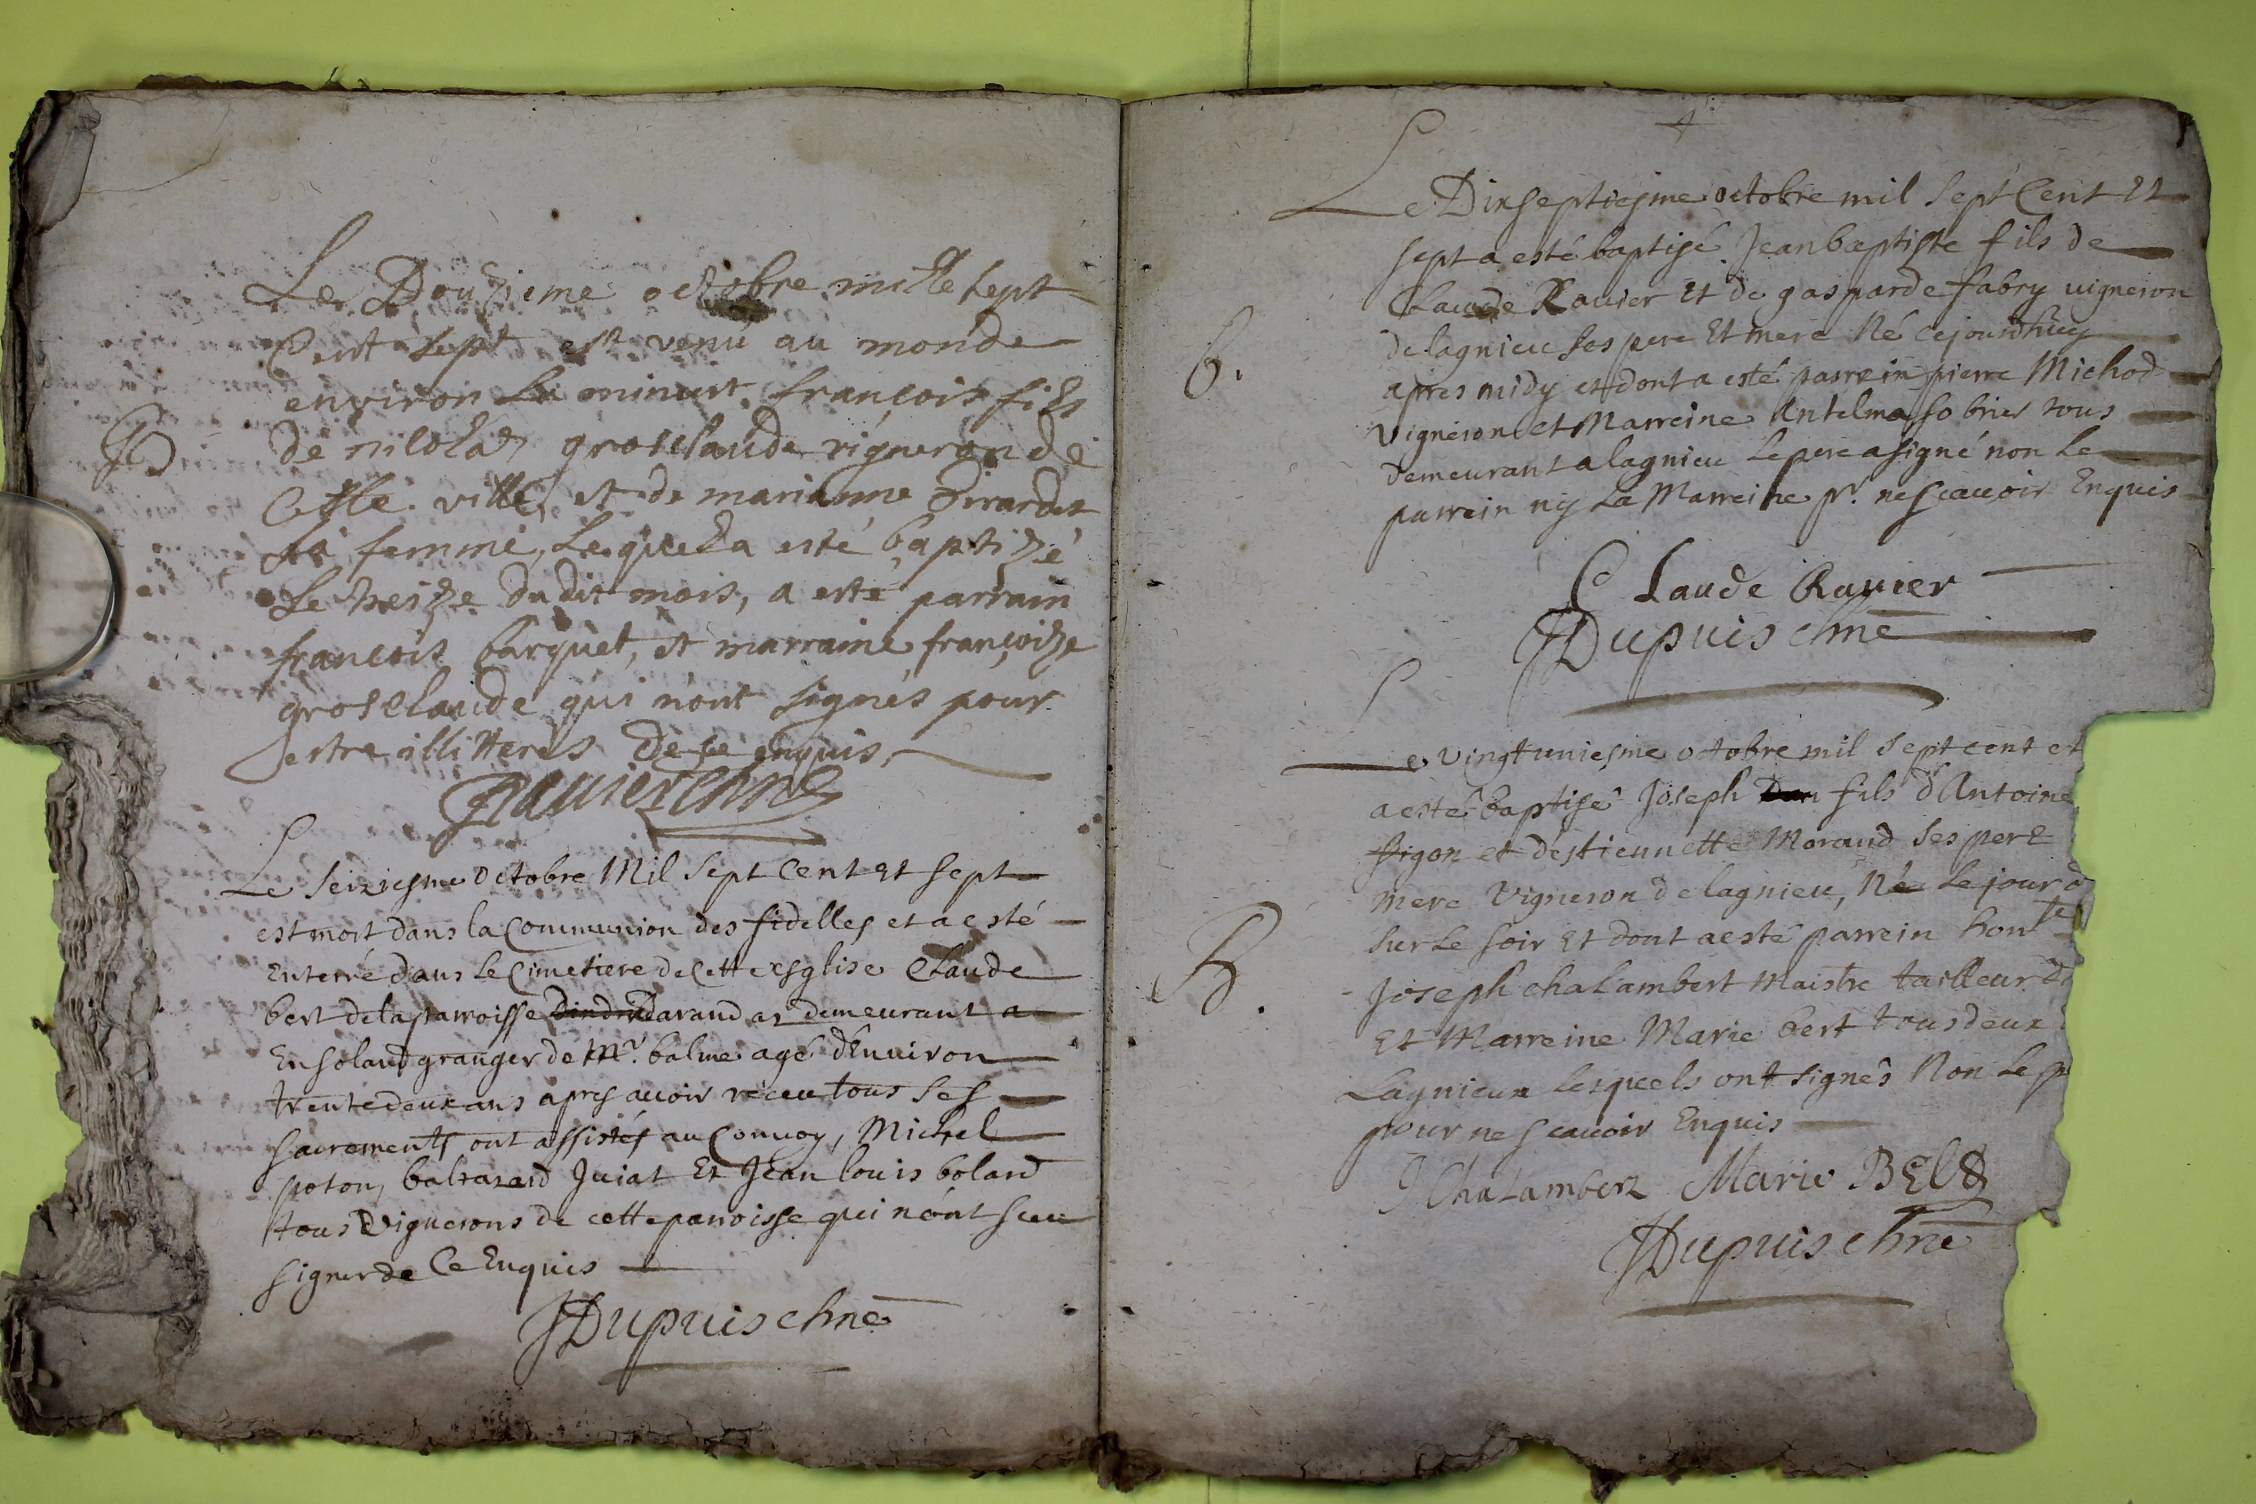 Le Douzieme octobre mille sept
Cent sept est venu au monde
environ la minuit françois fils
B
de nicolas groslaude vigneron de
Cette ville, et de marianne Girardet
sa femme, Lequel a esté baptizé
Le treize dudit mois, a esté parrain
françois barquet, et marraine françoize
groselaude qui n'ont signés pour
estre illitterés de ce enquis,
Ravier chne
Le seiziesme octobre Mil Sept Cent et Sept
est mort dans la Communion des fidelles et a esté
Enterré dans le Cimetiere de Cette esglise Claude
bert de la parroisse darandaz demeurant a
Ensoland granger de Mr. balme agé d'Enuiron
trente deux ans apres auoir receu tous ses
sacrements ont assistés au Conuoy, Michel
poton, baltazard Juiat Et Jean louis bolard
tous Vignerons de cette parroisse qui n'ont sceu
signer de Ce Enquis
JDupuis chne
Le Dixseptiesme octobre mil Sept Cent Et
sept a esté baptisé Jean baptiste fils de
Claude Rauier Et de gasparde fabry uigneron
de lagnieu ses pere Et mere Né Cejourdhuy
B.
apres midy et dont a esté parrein pierre Michod
Vigneron et Marreine Antelma Sobrier tous
demeurant a lagnieu Le pere a signé non Le
parrein ny La Marreine pr. ne scauoir Enquis
Claude Rauier
JDupuis chne
Le Vingtuniesme octobre mil Sept cent et
a esté baptisé Joseph fils d'Antoine
figon et destiennette Moraud ses pere
mere Vigneron de lagnieu, Né Le jour
sur Le soir Et dont a esté parrein hon.te
B.
Joseph chalambert Maistre tailleur
Et Marreine Marie bert tous deux
Lagnieux Lesquels ont signés Non Le p
pour ne scauoir Enquis
J Chalambert Marie BERT
JDupuis chne